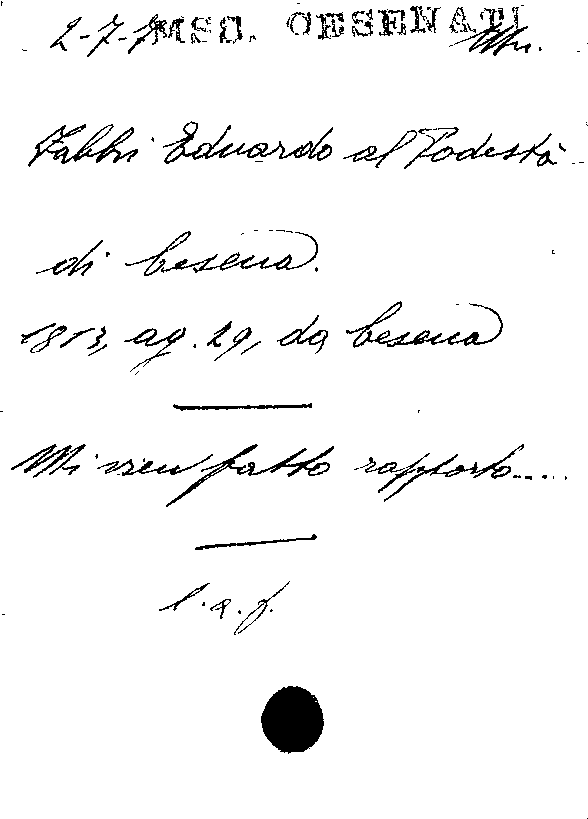 2-7-7 MSS. CESENATI
Fabbri Eduardo al Podestà
di Cesena.
1813, ag. 29, da Cesena
Mi vien fatto rapporto.....
l. a. f.